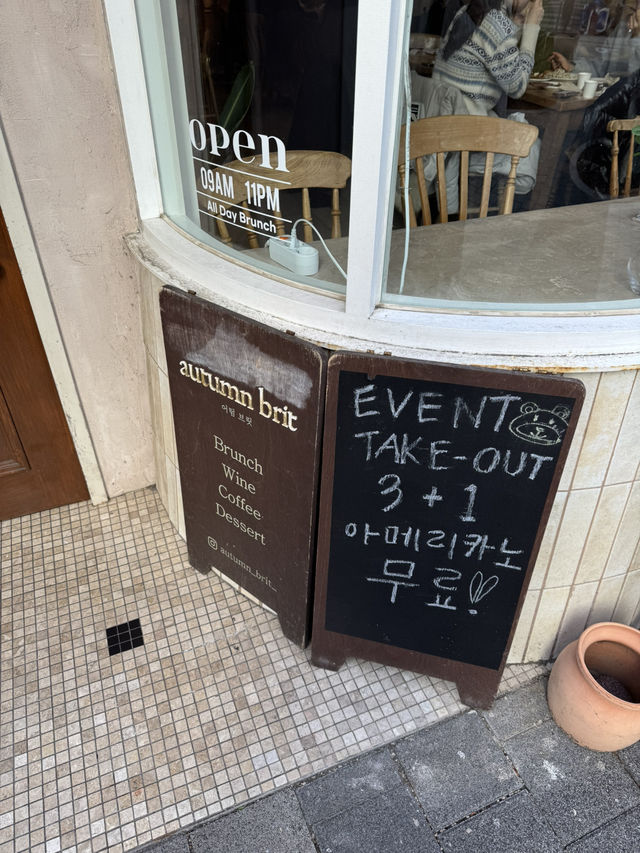 open
09AM 11PM
All Day Brunch
autumn brit
어텀 브릿
Brunch
Wine
Coffee
Dessert
autumn_brit_
EVENT
TAKE-OUT
3 + 1
아메리카노
무료!